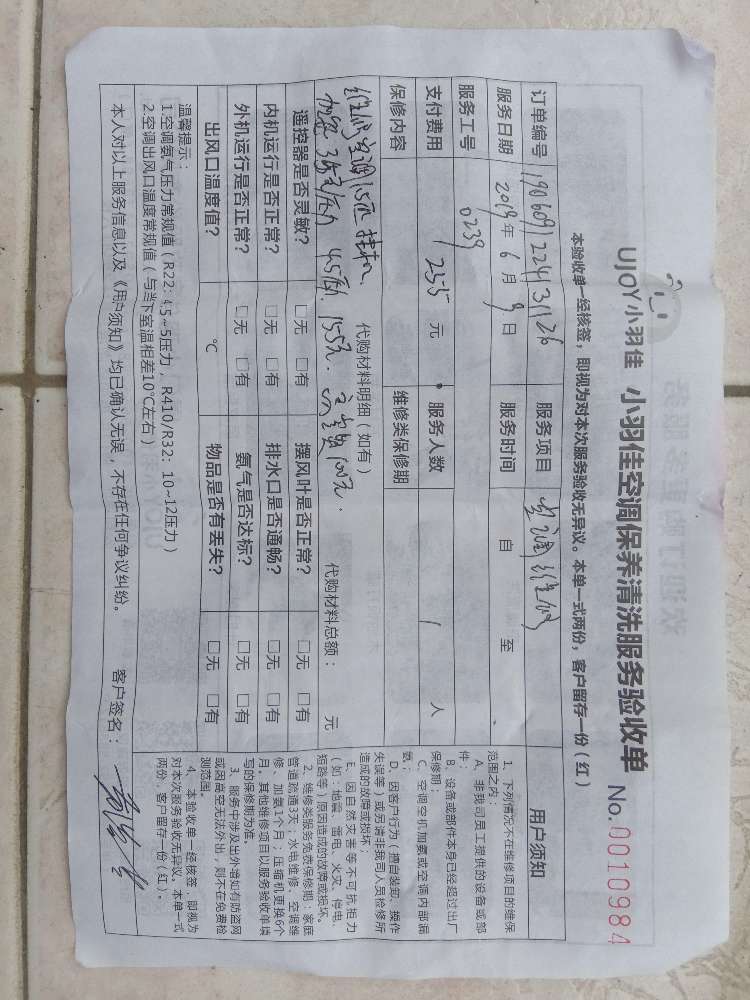 UJOY小羽佳 小羽佳空调保养清洗服务验收单 No.0010984
本验收单一经核签，即视为对本次服务验收无异议。本单一式两份，客户留存一份（红）
订单编号 服务项目 空调维修
服务日期 2019年6月9日 服务时间 自 至
服务工号 0239
支付费用 255元 服务人数 1人
保修内容 维修类保修期
代购材料明细（如有） 代购材料总额： 元
维修空调1.5匹挂机、
加氟 45元 155元. 高空费100元.
遥控器是否灵敏？ □无 □有 摆风叶是否正常？ □无 □有
内机运行是否正常？ □无 □有 排水口是否通畅？ □无 □有
外机运行是否正常？ □无 □有 氨气是否达标？ □无 □有
出风口温度值？ ℃ 物品是否有丢失？ □无 □有
温馨提示：
1.空调氨气压力常规值（R22: 4.5~5压力，R410/R32: 10~12压力）
2.空调出风口温度常规值（与当下室温相差10℃左右）
本人对以上服务信息以及《用户须知》均已确认无误，不存在任何争议纠纷。 客户签名：
用户须知
1、下列情况不在维修项目的维保
范围之内：
A、非我司员工提供的设备或部
件；
B、设备或部件本身已经超过出厂
保修期
C、空调空机加氨或空调内部漏
氨；
D、因客户行为（擅自装卸、操作
失误等）或另请非我司人员检修所
造成的故障或损坏
E、因自然灾害等不可抗拒力
（如：地震、雷电、火灾、停电、
短路等）原因造成的故障或损坏。
2、维修类服务免费保修期：家庭
管道疏通3天；水电维修、空调维
修、加氨1个月；压缩机更换6个
月。其他维修项目以服务验收单填
写的保修期为准。
3、服务中涉及出外墙如有防盗网
或因高空无法外出，则不在免费检
测范围。
4、本验收单一经核签，即视为
对本次服务验收无异议。本单一式
两份，客户留存一份（红）。